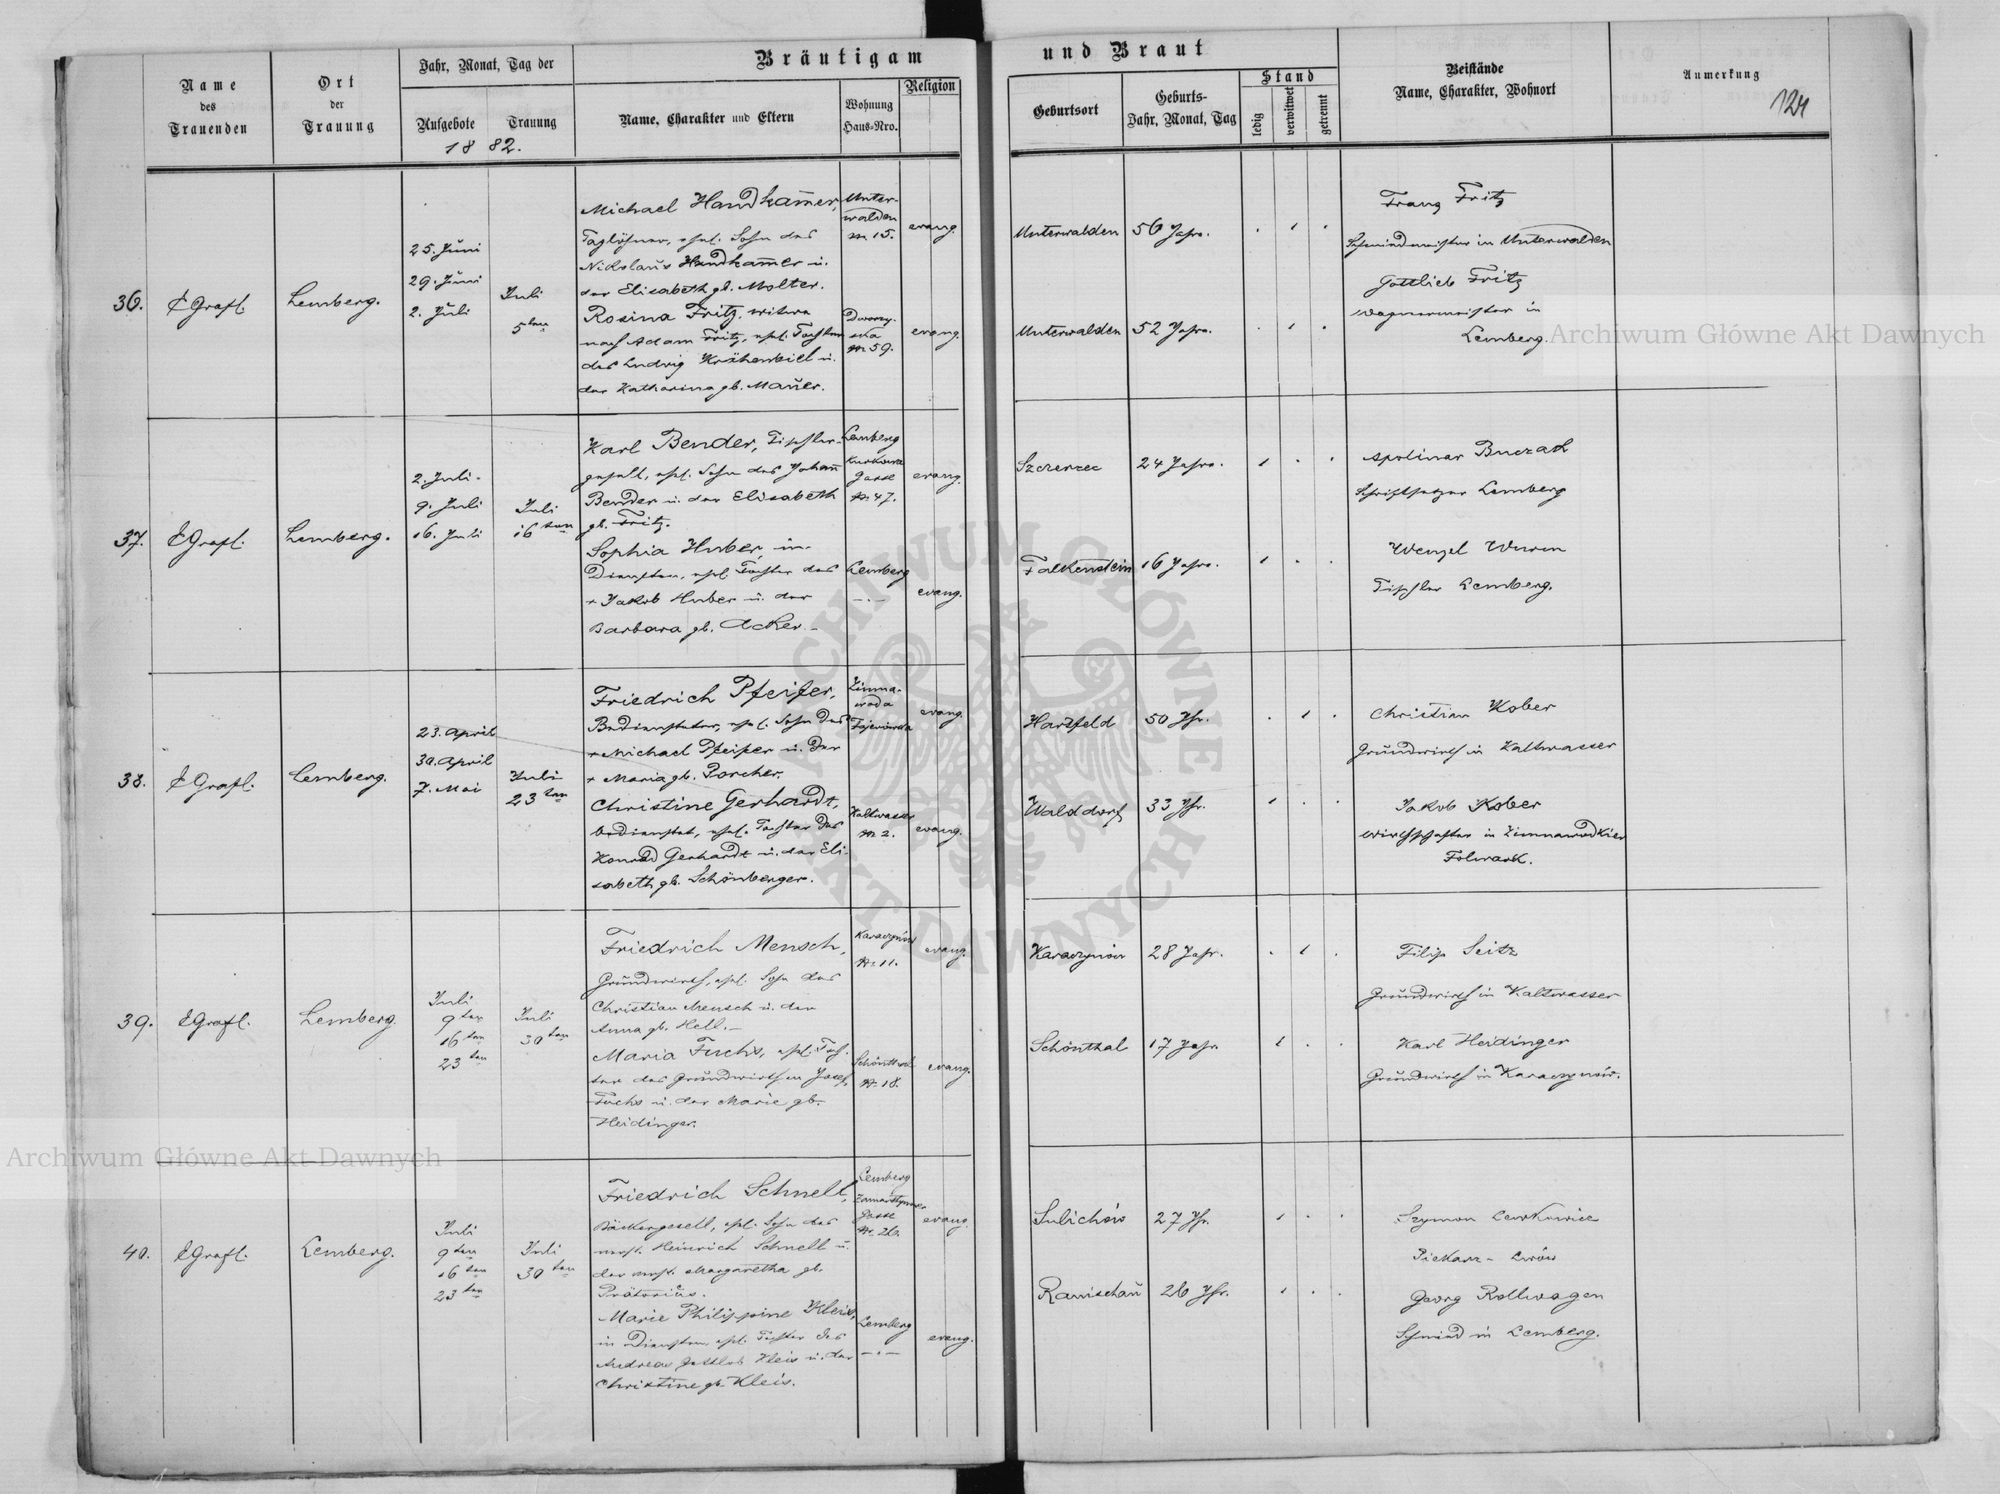 Bräutigam
und Braut
Name
des
Trauenden
Ort
der
Trauung
Jahr, Monat, Tag der
Aufgebote
Trauung
1882.
Name, Charakter und Eltern
Wohnung
Haus-Nro.
Religion
Geburtsort
Geburts-
Jahr, Monat, Tag
Stand
ledig
verwitwet
getrennt
Beistände
Name, Charakter, Wohnort
Anmerkung
124
36.
Lemberg.
25. Juni
29. Juni
2. Juli
Juli
5ten
Michael Handkam̅er,
Taglöhner, ehel. Sohn des
Nikolaus Handkam̅er u.
der Elisabeth gb. Molter.
Unter-
walden
№ 15.
evang.
Rosina Fritz, Witwe
nach Adam Fritz, ehel. Tochter
des Ludwig Krähenbiel u.
der Katharina gb. Mauer.
№ 59.
evang.
Unterwalden
56 Jahr.
Unterwalden
52 Jahre.
Franz Fritz
Schmiedmeister in Unterwalden
Gottlieb Fritz
Wagnermeister in
Lemberg.
37.
Lemberg.
2. Juli.
9. Juli
16. Juli
Juli
16ten
Karl Bender, Tischler-
gesell, ehel. Sohn des Johan̅
Bender u. der Elisabeth
gb. Fritz.
Lemberg
Kurkowa
Gasse
№ 47.
evang.
Sophia Huber, in
Diensten, ehel. Tochter des
+ Jakob Huber u. der
Barbara gb. Acker.
Lemberg
evang.
Szczerzec
24 Jahre.
Falkenstein
16 Jahre.
Apolinar Buczak
Schriftsetzer Lemberg
Wenzel Wurm
Tischler Lemberg.
38.
Lemberg.
23. April
30. April
7. Mai
Juli
23ten
Friedrich Pfeifer,
Bediensteter, ehel. Sohn des
+ Michael Pfeifer u. der
+ Maria gb. Porcher.
Zimna-
woda
evang.
Christine Gerhardt,
bedienstet, ehel. Tochter des
Konrad Gerhardt u. der Eli-
sabeth gb. Schönberger.
Kaltwasser
№ 2.
evang.
Hartfeld
50 Jhr.
Walddorf
33 Jhr.
Christian Kober
Grundwirth in Kaltwasser
Jakob Kober
Wirthschafter in Zimnawodkier
Folwark.
39.
Lemberg.
Juli
9ten
16ten
23ten
Juli
30ten
Friedrich Mensch,
Grundwirth, ehel. Sohn des
Christian Mensch u. der
Anna gb. Hell.
Karaczynów
№ 11.
evang.
Maria Fuchs, ehel. Toch-
ter des Grundwirthen Josef
Fuchs u. der Marie gb.
Heidinger.
Schönthal
№ 18.
evang.
Karaczynów
28 Jahr.
Schönthal
17 Jahr.
Filip Seitz
Grundwirth in Kaltwasser
Karl Heidinger
Grundwirth in Karaczynów.
40.
Lemberg.
Juli
9ten
16ten
23ten
Juli
30ten
Friedrich Schnell,
Bäckergesell, ehel. Sohn des
verst. Heinrich Schnell u.
der verst. Margaretha gb.
Prätorius.
Lemberg
Gasse
№ 26.
evang.
Marie Philippine Kleis,
in Diensten, ehel. Tochter des
Andreas Gottlob Kleis u. der
Christine gb. Kleis.
Lemberg
evang.
Sulichów
27 Jhr.
Ranischau
26 Jhr.
Szymon Lewkowicz
Piekarz - Lwów
Georg Rollwagen
Schmied in Lemberg.
Archiwum Główne Akt Dawnych
Archiwum Główne Akt Dawnych
ARCHIWUM GŁÓWNE AKT DAWNYCH